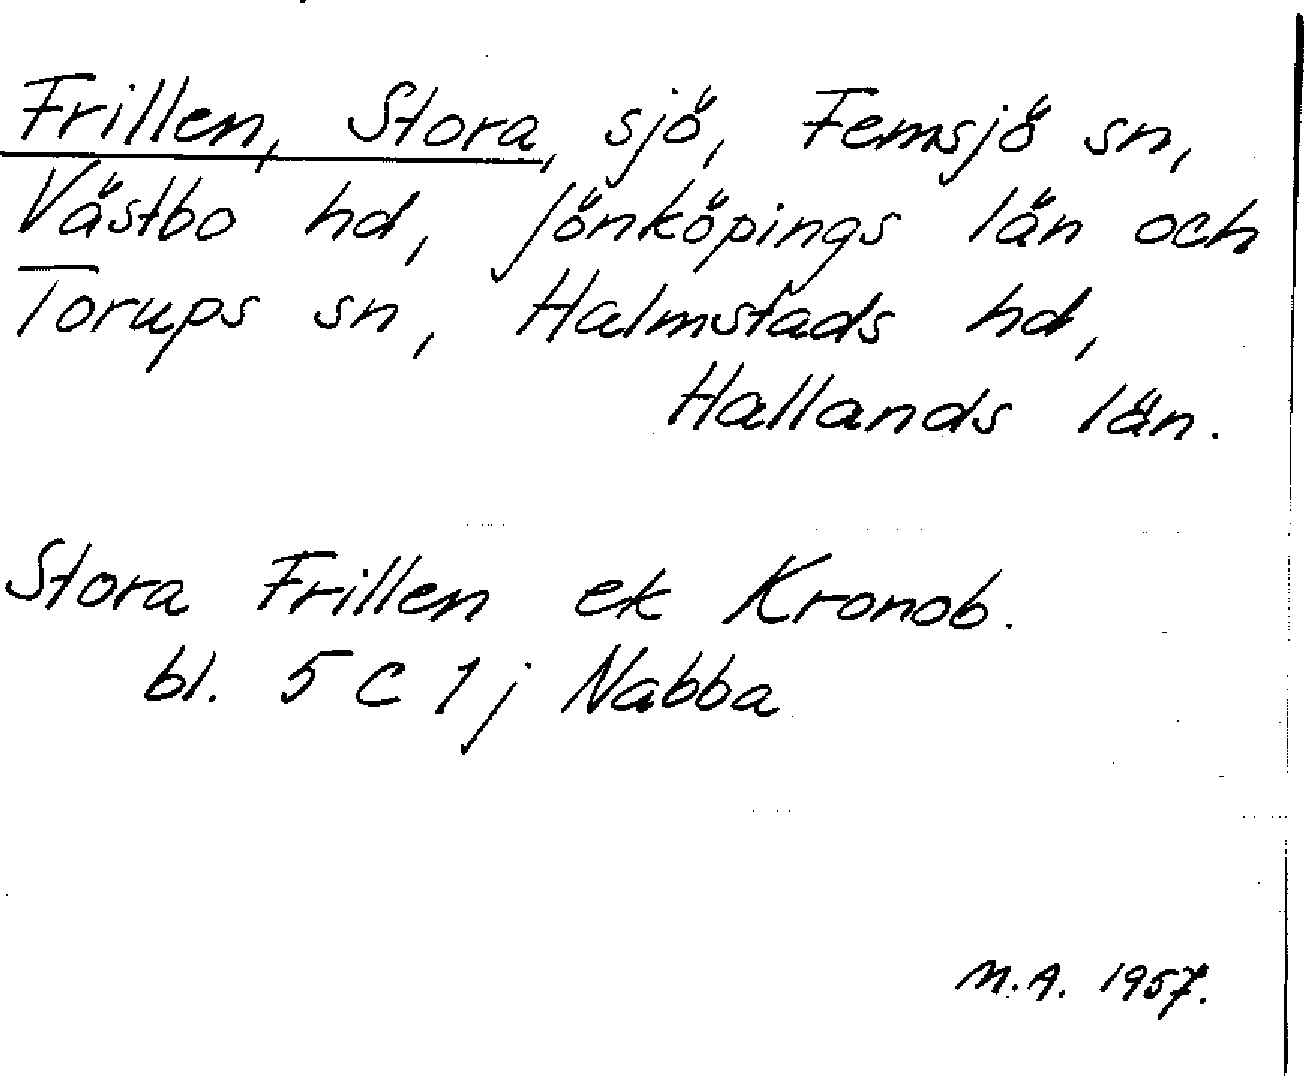 Frillen, Stora, sjö, Femsjö sn,
Västbo hd, Jönköpings län och
Torups sn, Halmstads hd,
Hallands län.
Stora Frillen ek Kronob.
bl. 5 C 1 j Nabba
M.A. 1957.